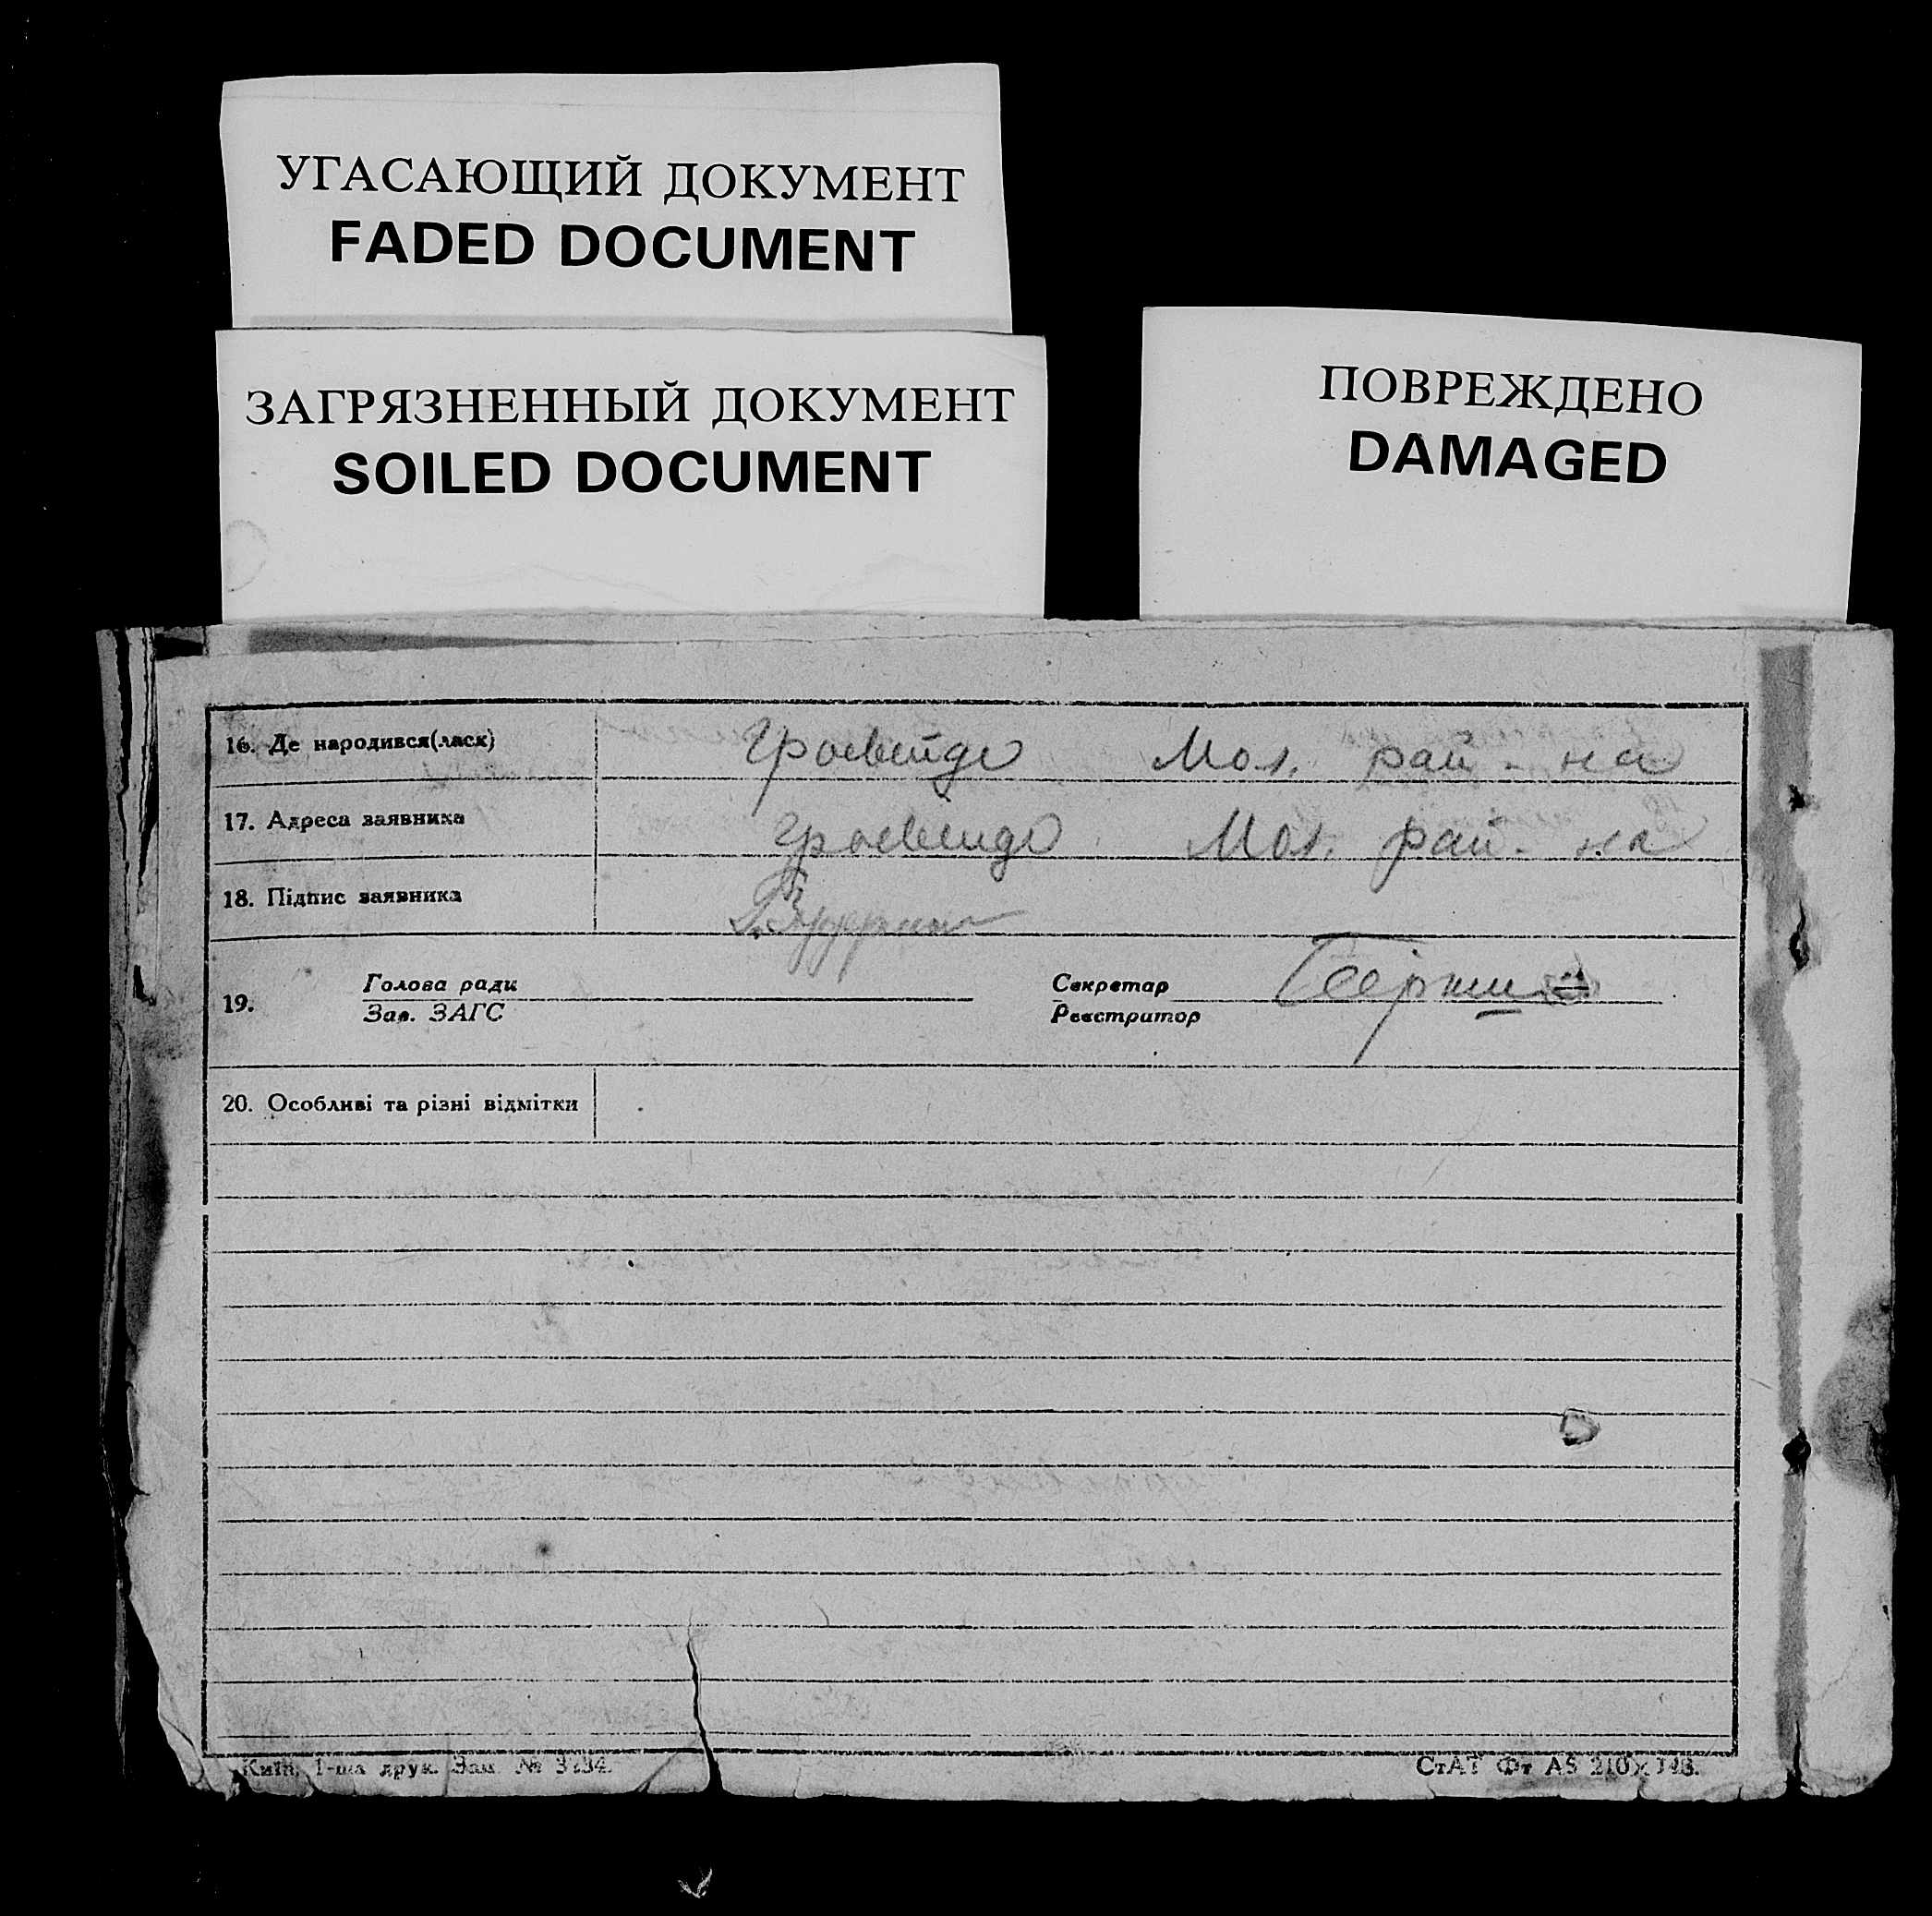 УГАСАЮЩИЙ ДОКУМЕНТ
FADED DOCUMENT
ЗАГРЯЗНЕННЫЙ ДОКУМЕНТ
SOILED DOCUMENT
ПОВРЕЖДЕНО
DAMAGED
16. Де народився(лася) Гросвейде Мол. рай-на
17. Адреса заявника Гросвейде Мол. рай-на
18. Підпис заявника
19. Голова ради Секретар
Зав. ЗАГС Реєстратор
20. Особливі та різні відмітки
Київ, 1-ша друк. Зам. № 3734.
СтАТ Фт А5 210×148.